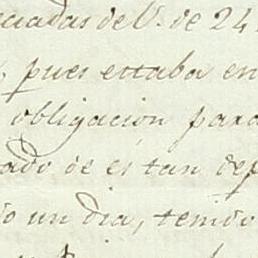 ciadas de V. de 24
, pues estaba en
obligación para
ado de es tan dep
o un dia, tenido